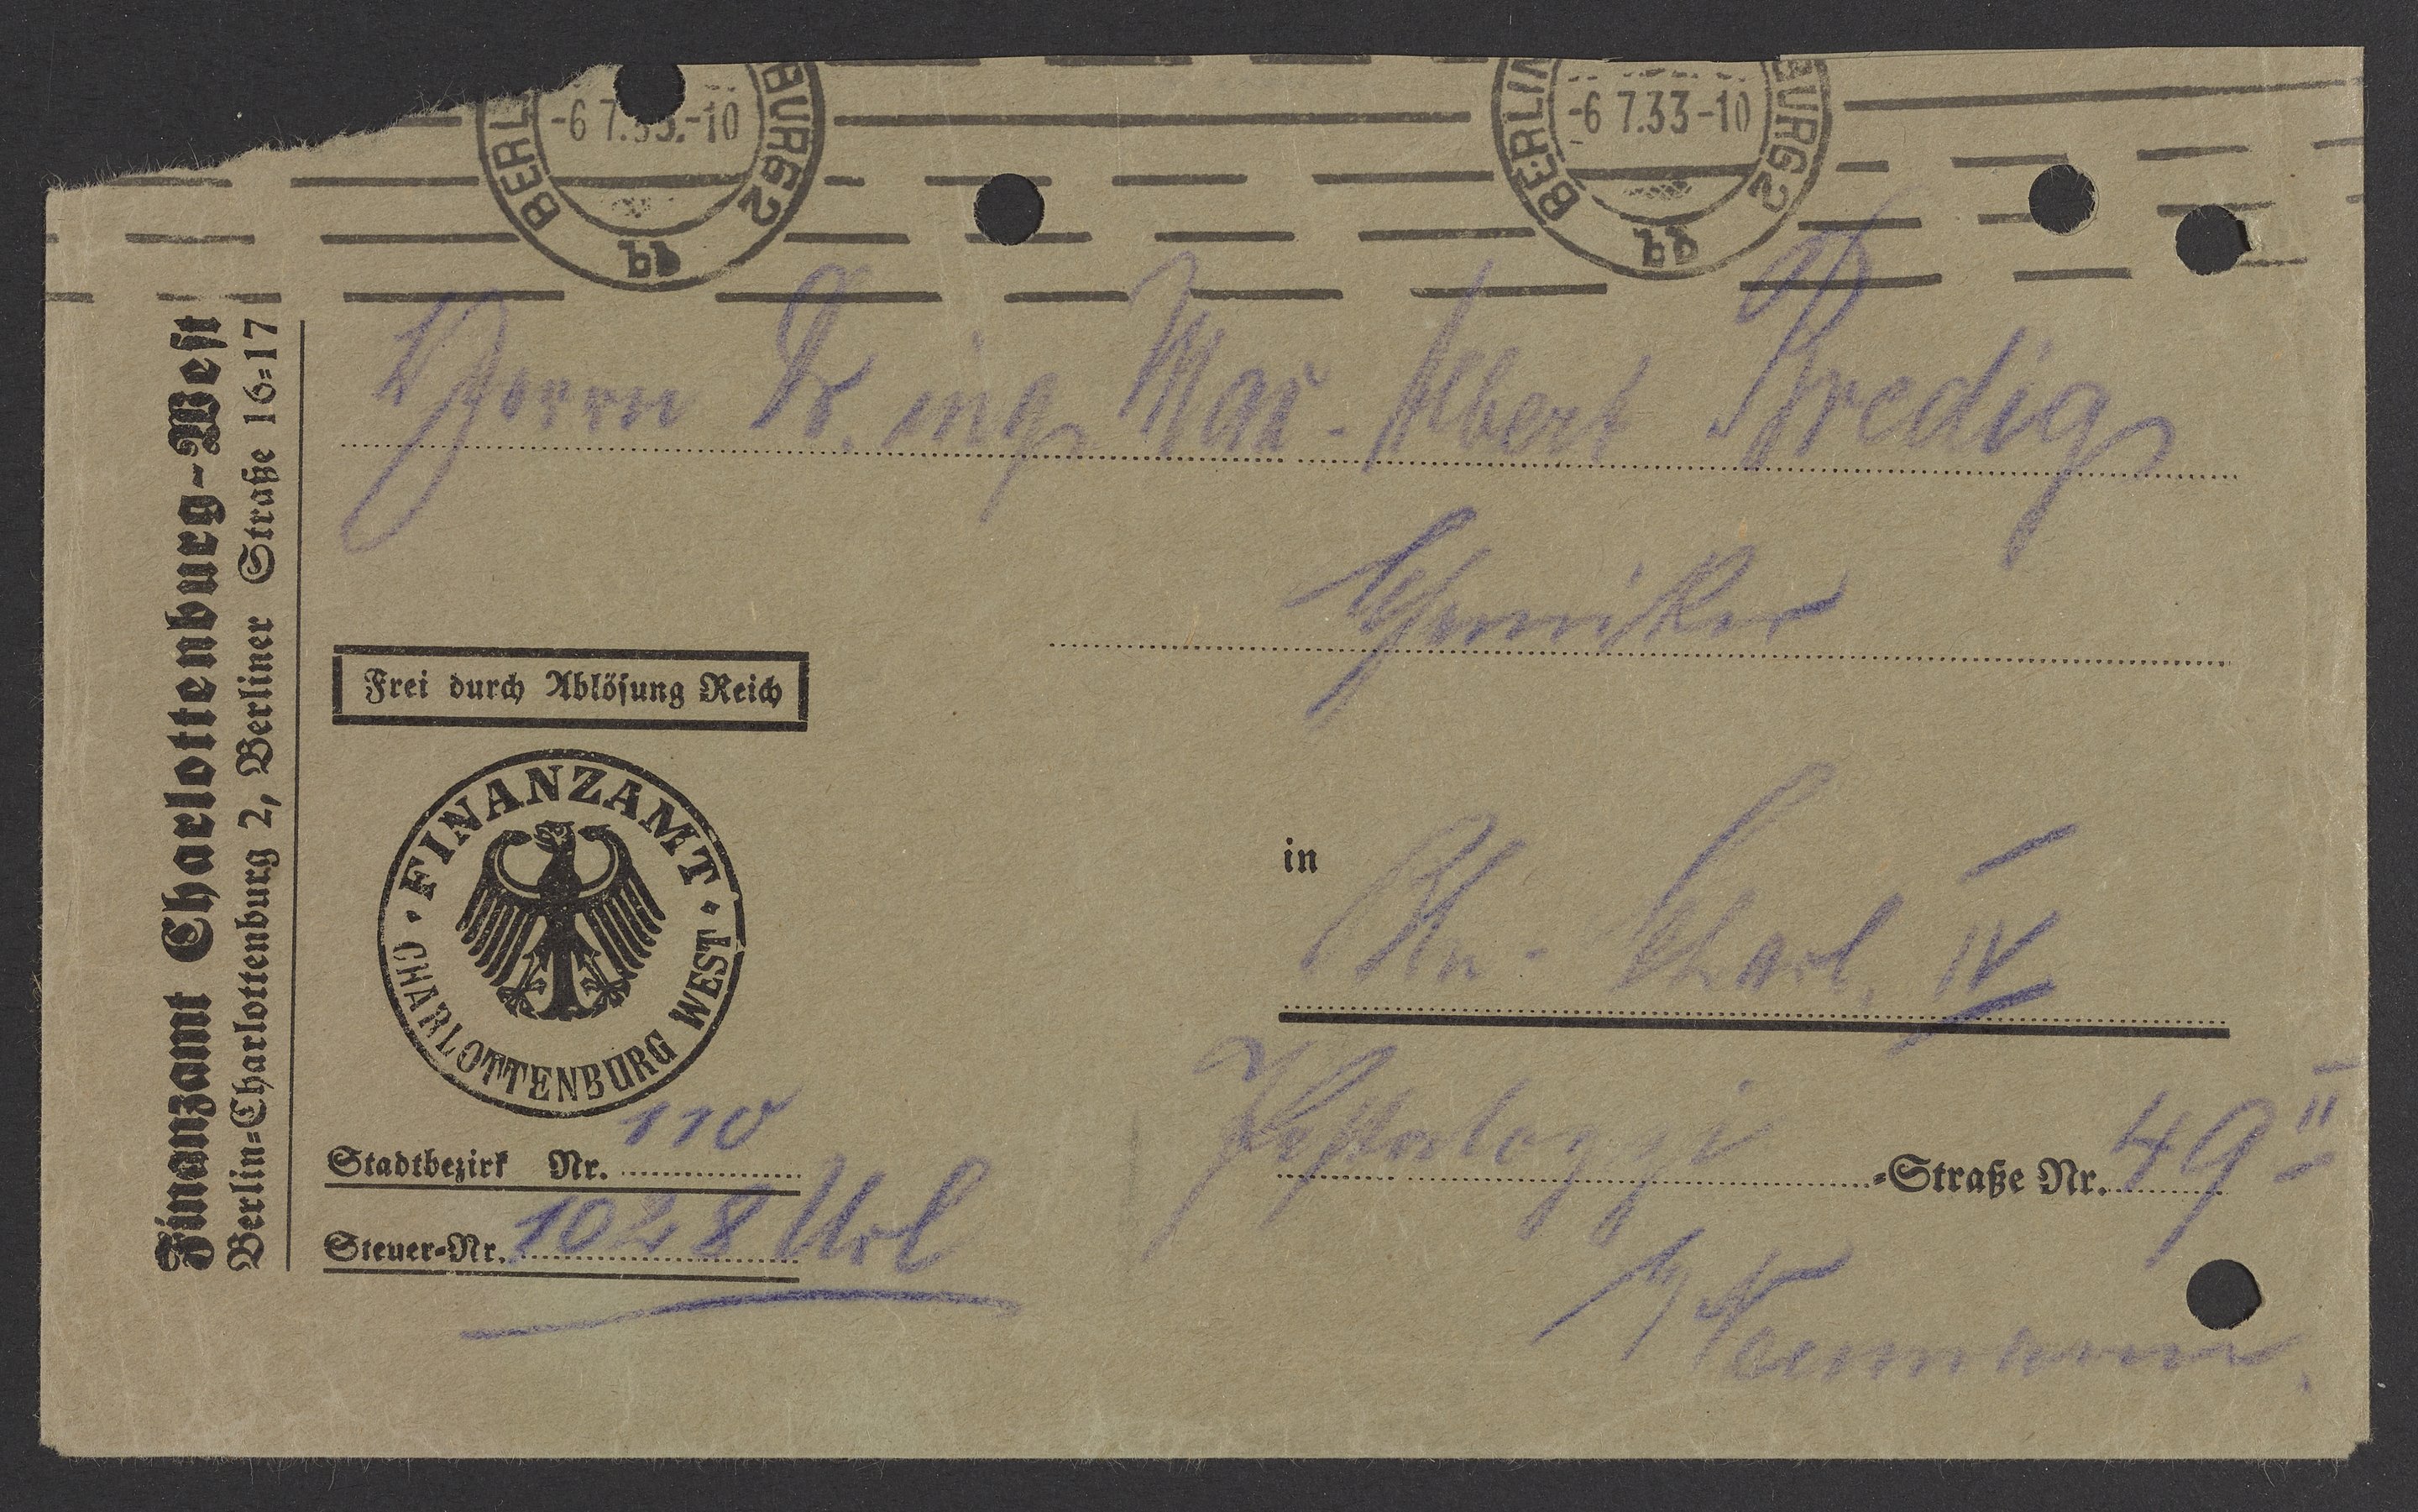 BERLIN
-6 7.33.-10
BURG2
BERLIN
-6 7.33-10
BURG2
Finanzamt Charlottenburg-West
Berlin-Charlottenburg 2, Berliner Straße 16-17
Herrn Dr. ing. Max-Albert Bredig
Chemiker
Frei durch Ablösung Reich
FINANZAMT
CHARLOTTENBURG WEST
in Bln-Charl. IV
Stadtbezirk Nr. 110
Pestalozzi-Straße Nr. 49 II
Steuer-Nr. 1028
b/ Neumann.